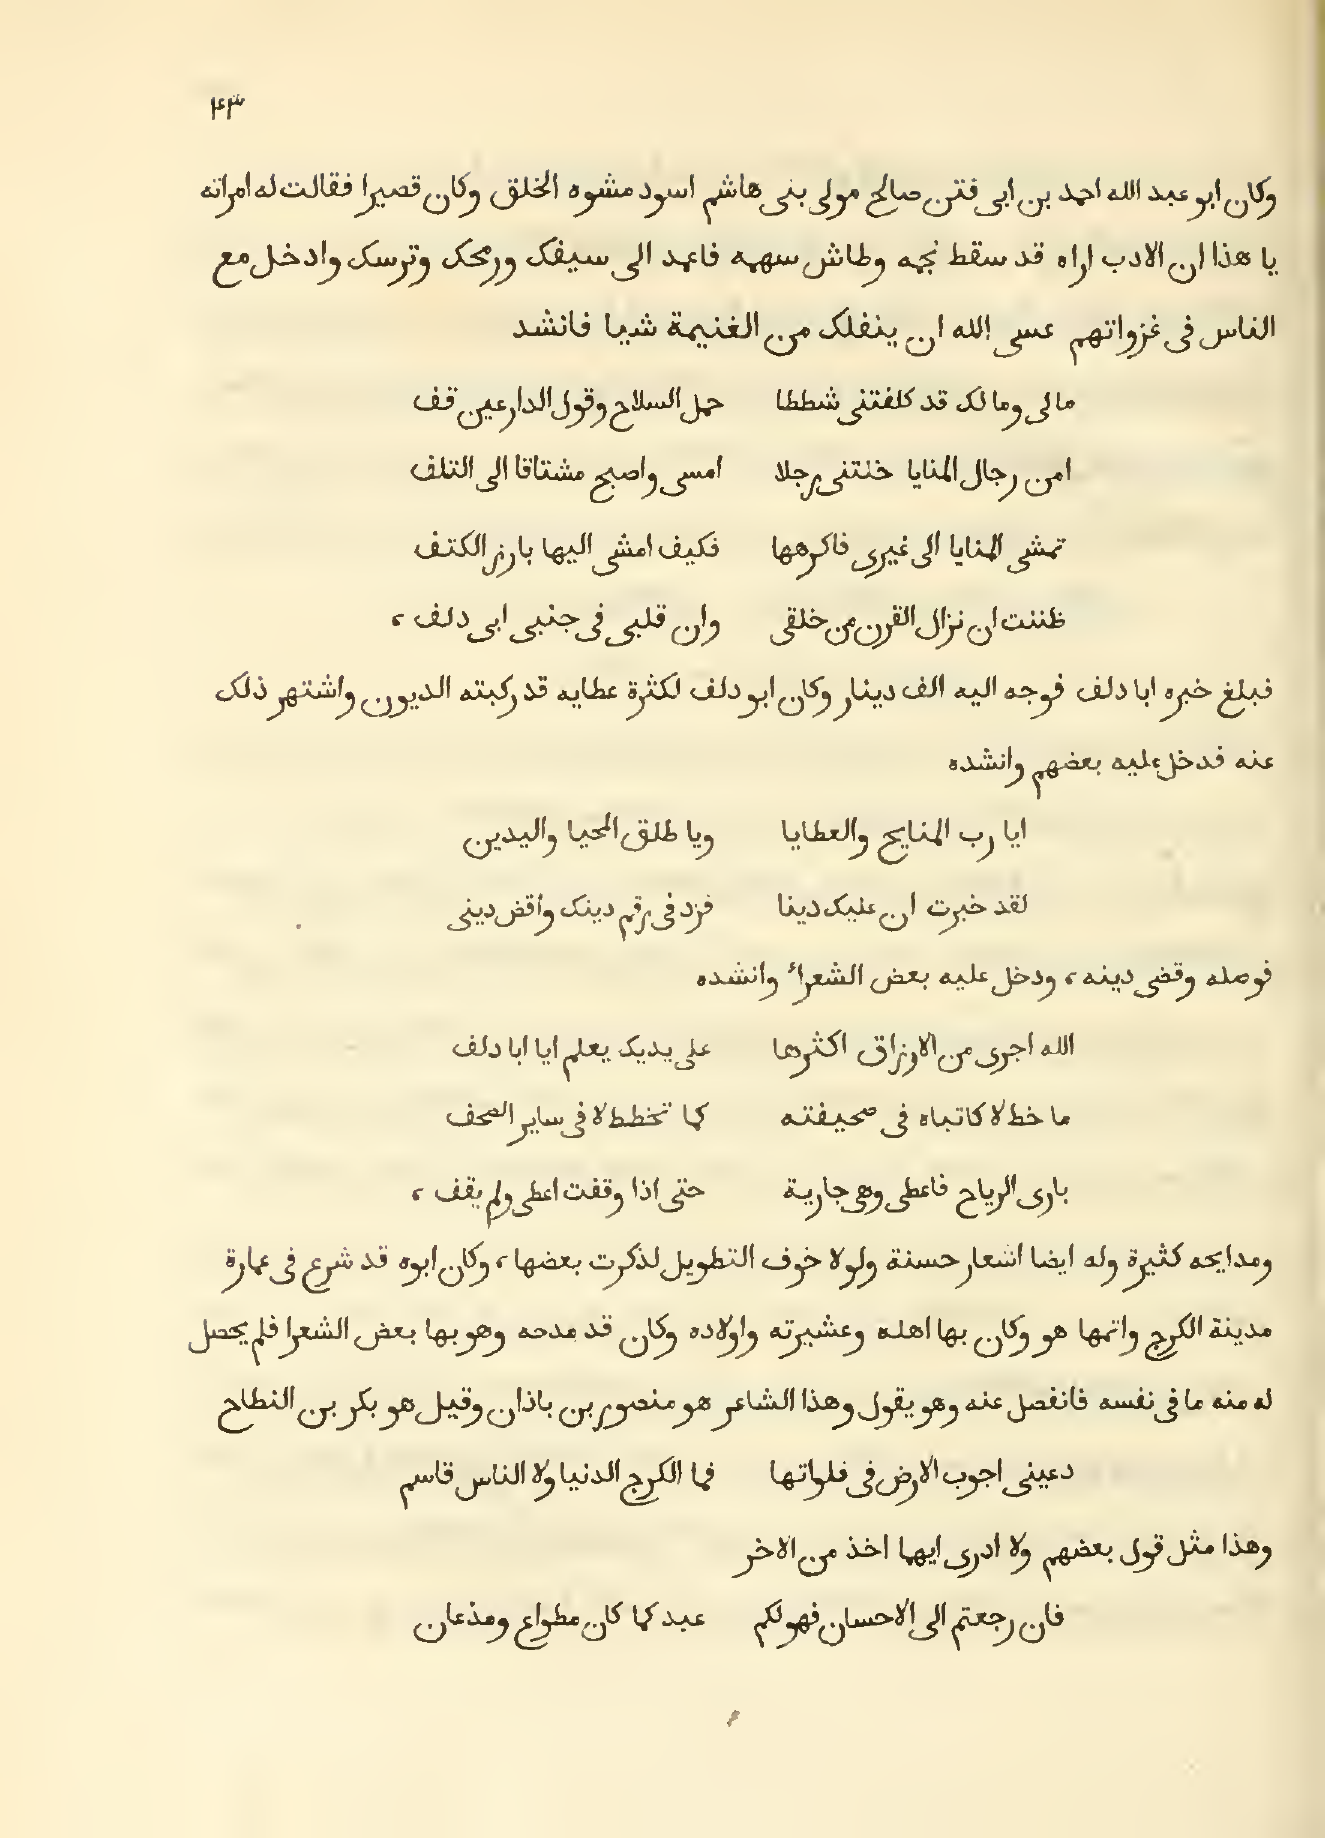 ۴۳
وكان ابو عبد الله احمد بن ابى فتن صالح مولى بنى هاشم اسود مشوه الخلق وكان قصيرا فقالت له امراته
يا هذا ان الادب اراه قد سقط نجمه وطاش سهمه فاعمد الى سيفك ورمحك وترسك وادخل مع
الناس فى غزواتهم عسى الله ان ينفلك من الغنيمة شيا فانشد
مالى وما لك قد كلفتنى شططا حمل السلاح وقول الدارعين قف
امن رجال المنايا خلتنى رجلا امسى واصبح مشتاقا الى التلف
تمشى المنايا الى غيرى فاكرهها فكيف امشى اليها بارز الكتف
ظننت ان نزال القرن من خلقى وان قلبى فى جنبى ابى دلف ،
فبلغ خبره ابا دلف فوجه اليه الف دينار وكان ابو دلف لكثرة عطايه قد ركبته الديون واشتهر ذلك
عنه فدخل عليه بعضهم وانشده
ايا رب المنايح والعطايا ويا طلق المحيا واليدين
لقد خبرت ان عليك دينا فزد فى رقم دينك واقض دينى
فوصله وقضى دينه ، ودخل عليه بعض الشعراء وانشده
الله اجرى من الارزاق اكثرها على يديك يعلم ايا ابا دلف
ما خط لا كاتباه فى صحيفته كما تخطط لا فى ساير الصحف
بارى الرياح فاعطى وهى جارية حتى اذا وقفت اعطى ولم يقف ،
ومدايحه كثيرة وله ايضا اشعار حسنة ولولا خوف التطويل لذكرت بعضها ، وكان ابوه قد شرع فى عمارة
مدينة الكرج واتمها هو وكان بها اهله وعشيرته واولاده وكان قد مدحه وهو بها بعض الشعرا فلم يحصل
له منه ما فى نفسه فانفصل عنه وهو يقول وهذا الشاعر هو منصور بن باذان وقيل هو بكر بن النطاح
دعينى اجوب الارض فى فلواتها فما الكرج الدنيا ولا الناس قاسم
وهذا مثل قول بعضهم ولا ادرى ايهما اخذ من الاخر
فان رجعتم الى الاحسان فهو لكم عبد كما كان مطواع ومذعان